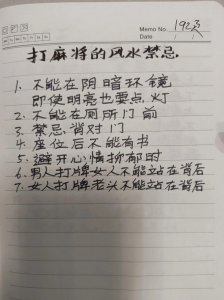 Memo No. 192页
Date
打麻将的风水禁忌
1. 不能在阴暗环镜
即使明亮也要点灯
2. 不能在厕所门前
3. 禁忌背对门
4 座位后不能有书
5. 避开心情抑郁时
6. 男人打牌女人不能站在背后
7. 女人打牌老头不能站在背后